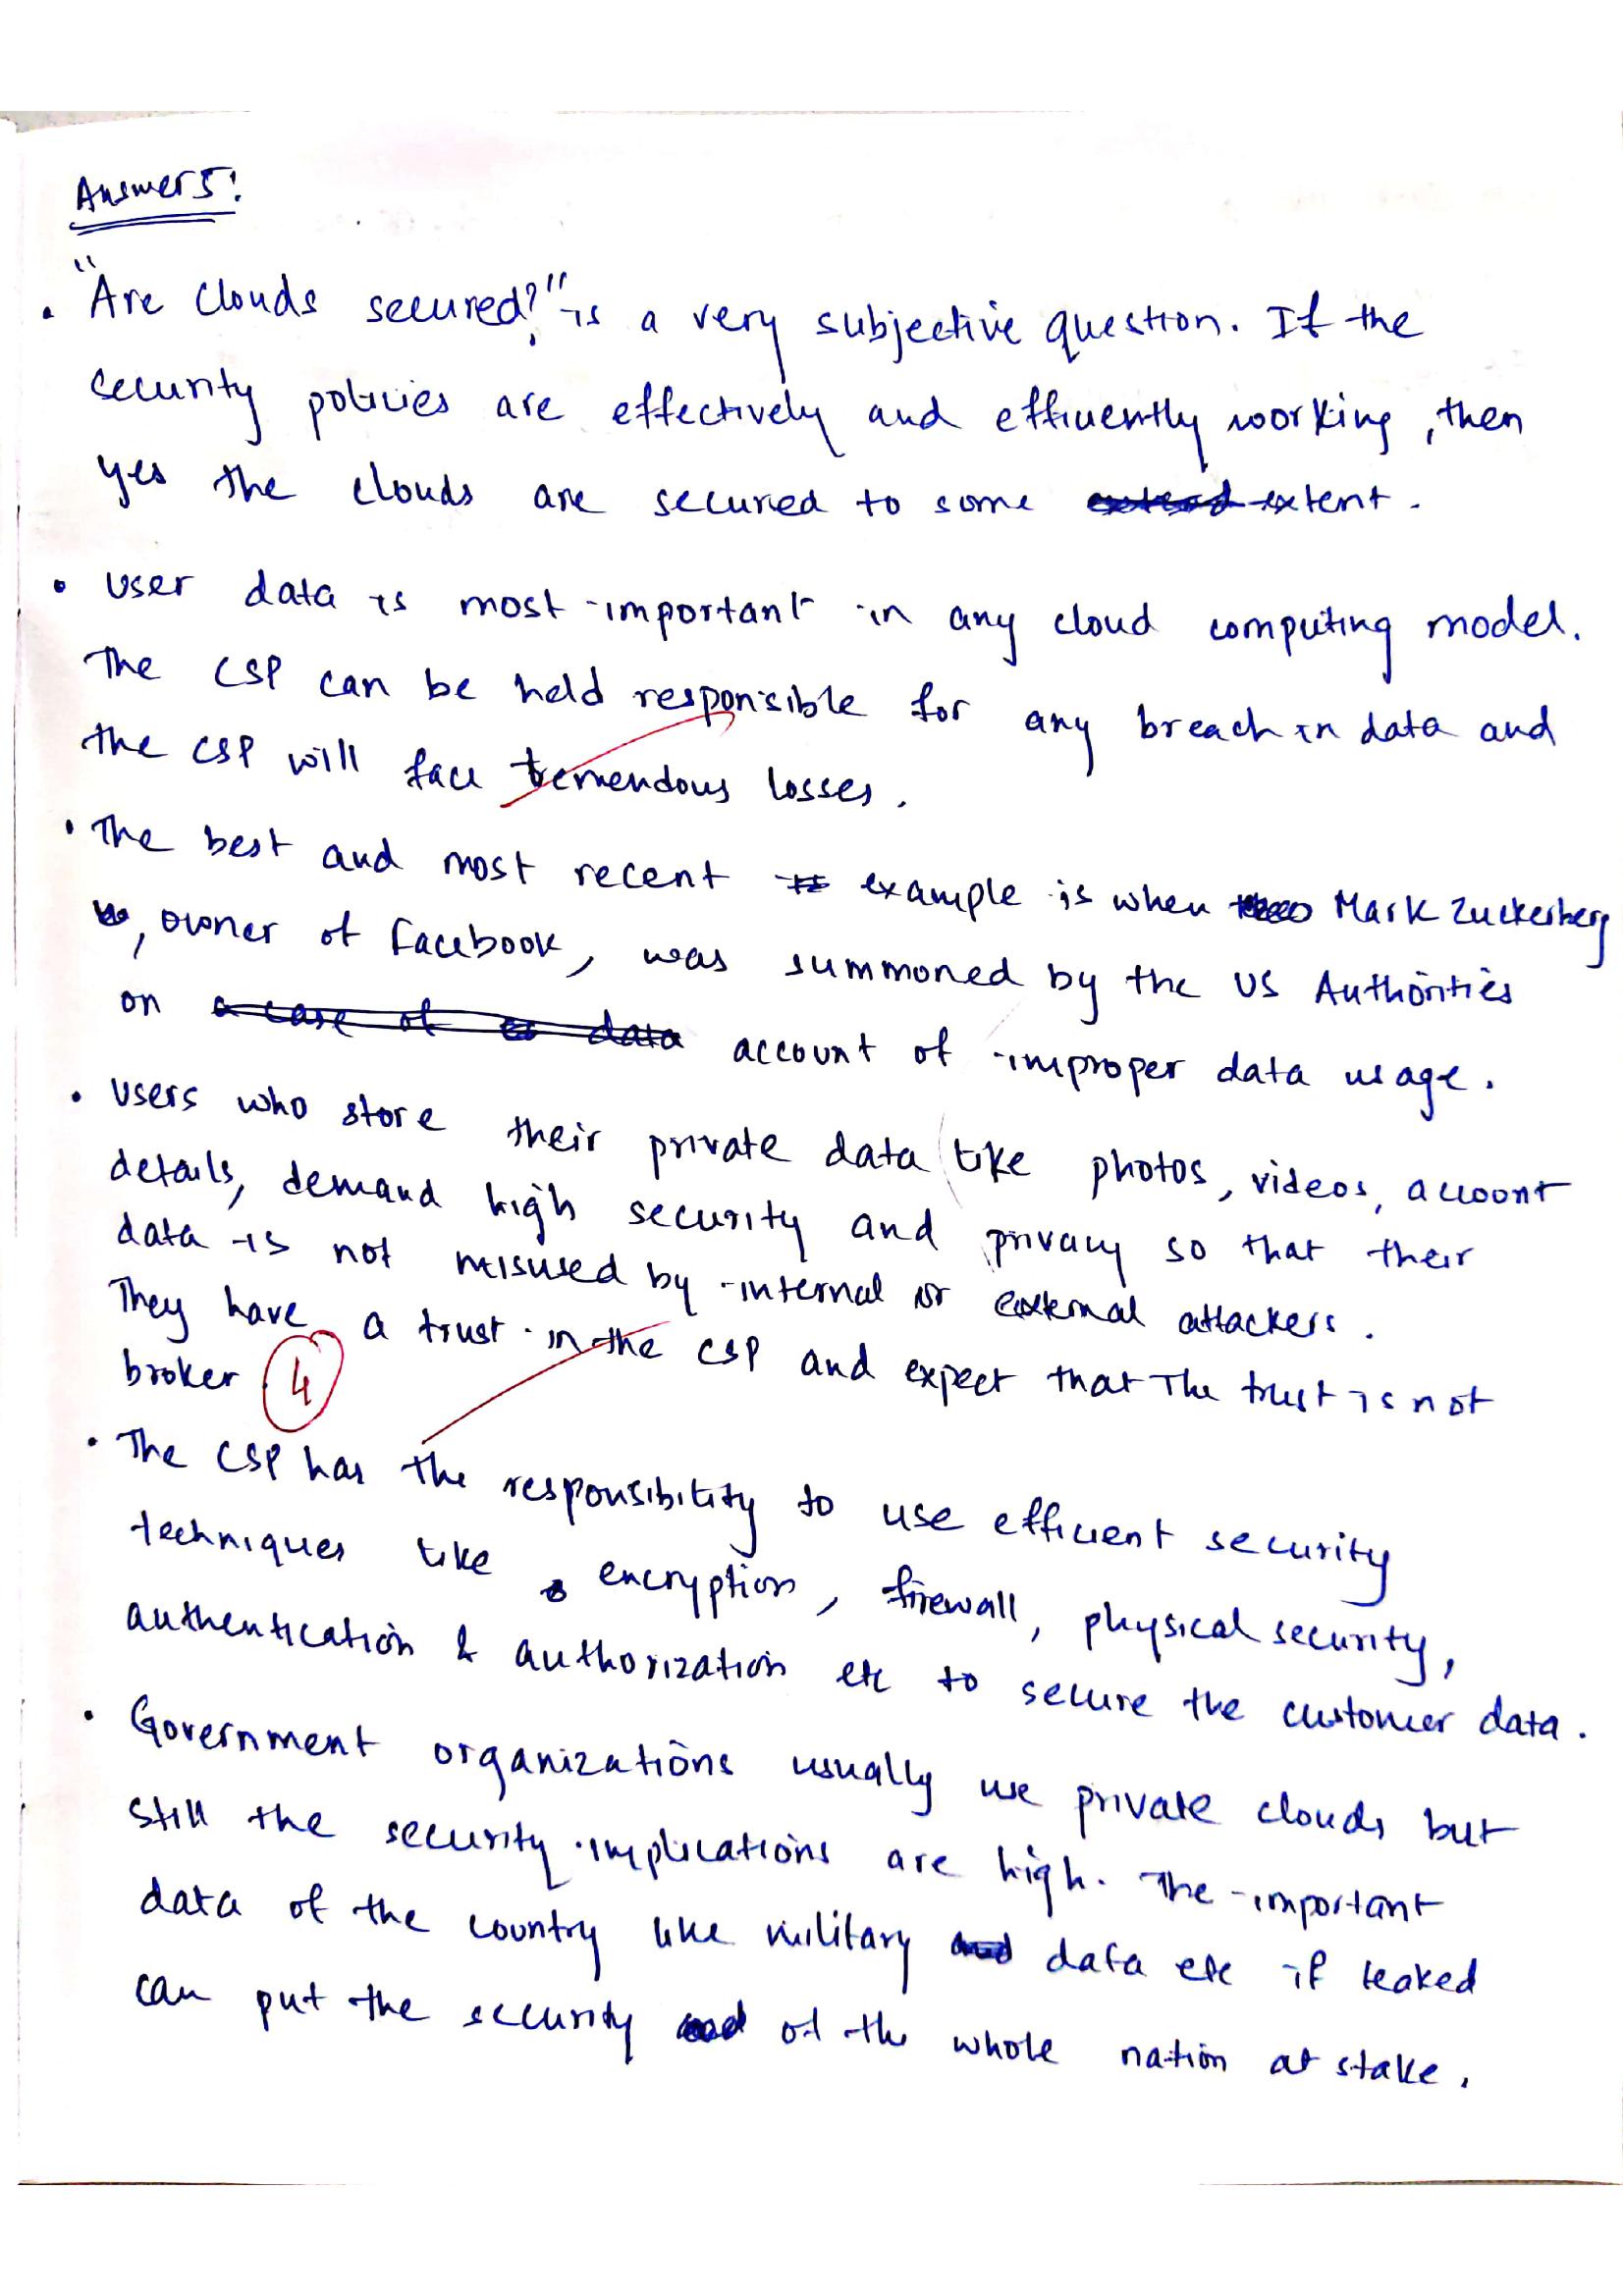 Answer 5:
• "Are Clouds secured?" is a very subjective question. If the
security policies are effectively and efficiently working, then
yes the clouds are secured to some extent.
• User data is most important in any cloud computing model.
The CSP can be held responsible for any breach in data and
the CSP will face tremendous losses.
• The best and most recent example is when Mark Zuckerberg
, owner of Facebook, was summoned by the US Authorities
on a case of data account of improper data usage.
• Users who store their private data like photos, videos, account
details, demand high security and privacy so that their
data is not misused by internal or external attackers.
They have a trust in the CSP and expect that The trust is not
broker 4
• The CSP has the responsibility to use efficient security
techniques like encryption, firewall, physical security,
authentication & authorization etc to secure the customer data.
• Government organizations usually use private clouds but
still the security implications are high. The important
data of the country like military data etc if leaked
can put the security of the whole nation at stake.